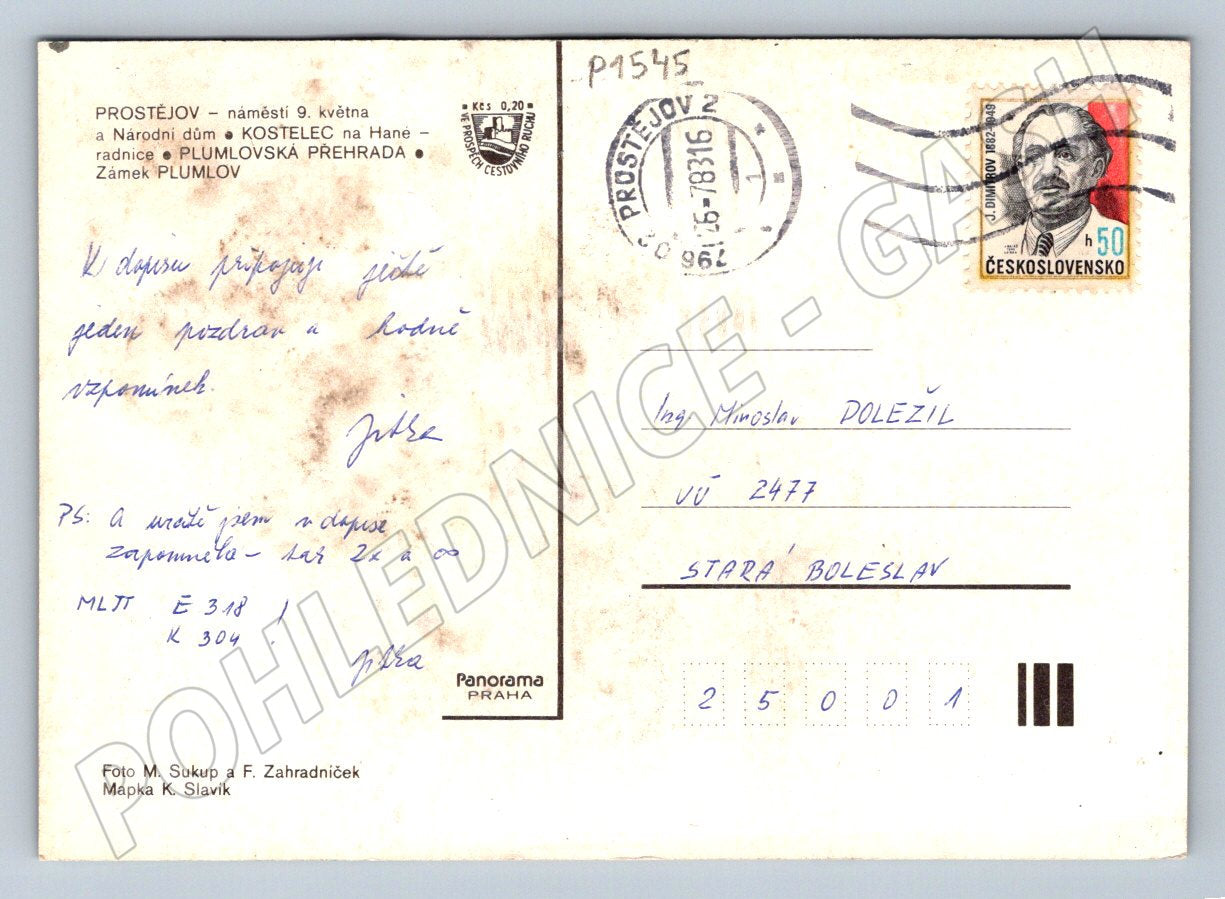 P1545
PROSTĚJOV – náměstí 9. května
a Národní dům • KOSTELEC na Hané –
radnice • PLUMLOVSKÁ PŘEHRADA •
Zámek PLUMLOV
Kčs 0,20
VE PROSPĚCH CESTOVNÍHO RUCHU
PROSTĚJOV 2
796 02
-78316
1
J. DIMITROV 1882-1949
h 50
ČESKOSLOVENSKO
K dopisu připojuji ještě
jeden pozdrav a hodně
vzpomínek.
Jitka
PS: A určitě jsem v dopise
zapomněla – tak 2x a ∞
E 318 !
K 304
Jitka
Ing Miroslav DOLEŽIL
VÚ 2477
STARÁ BOLESLAV
25001
Panorama
PRAHA
Foto M. Sukup a F. Zahradníček
Mapka K. Slavík
POHLEDNICE - GASH